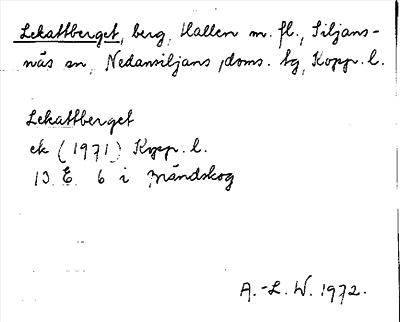 Lekattberget, berg, Hallen m. fl., Siljans-
näs sn, Nedansiljans doms. tg, Kopp. l.
Lekattberget
ek (1971) Kopp. l.
13 E 6 i Mändskog
A.-L. W. 1972.